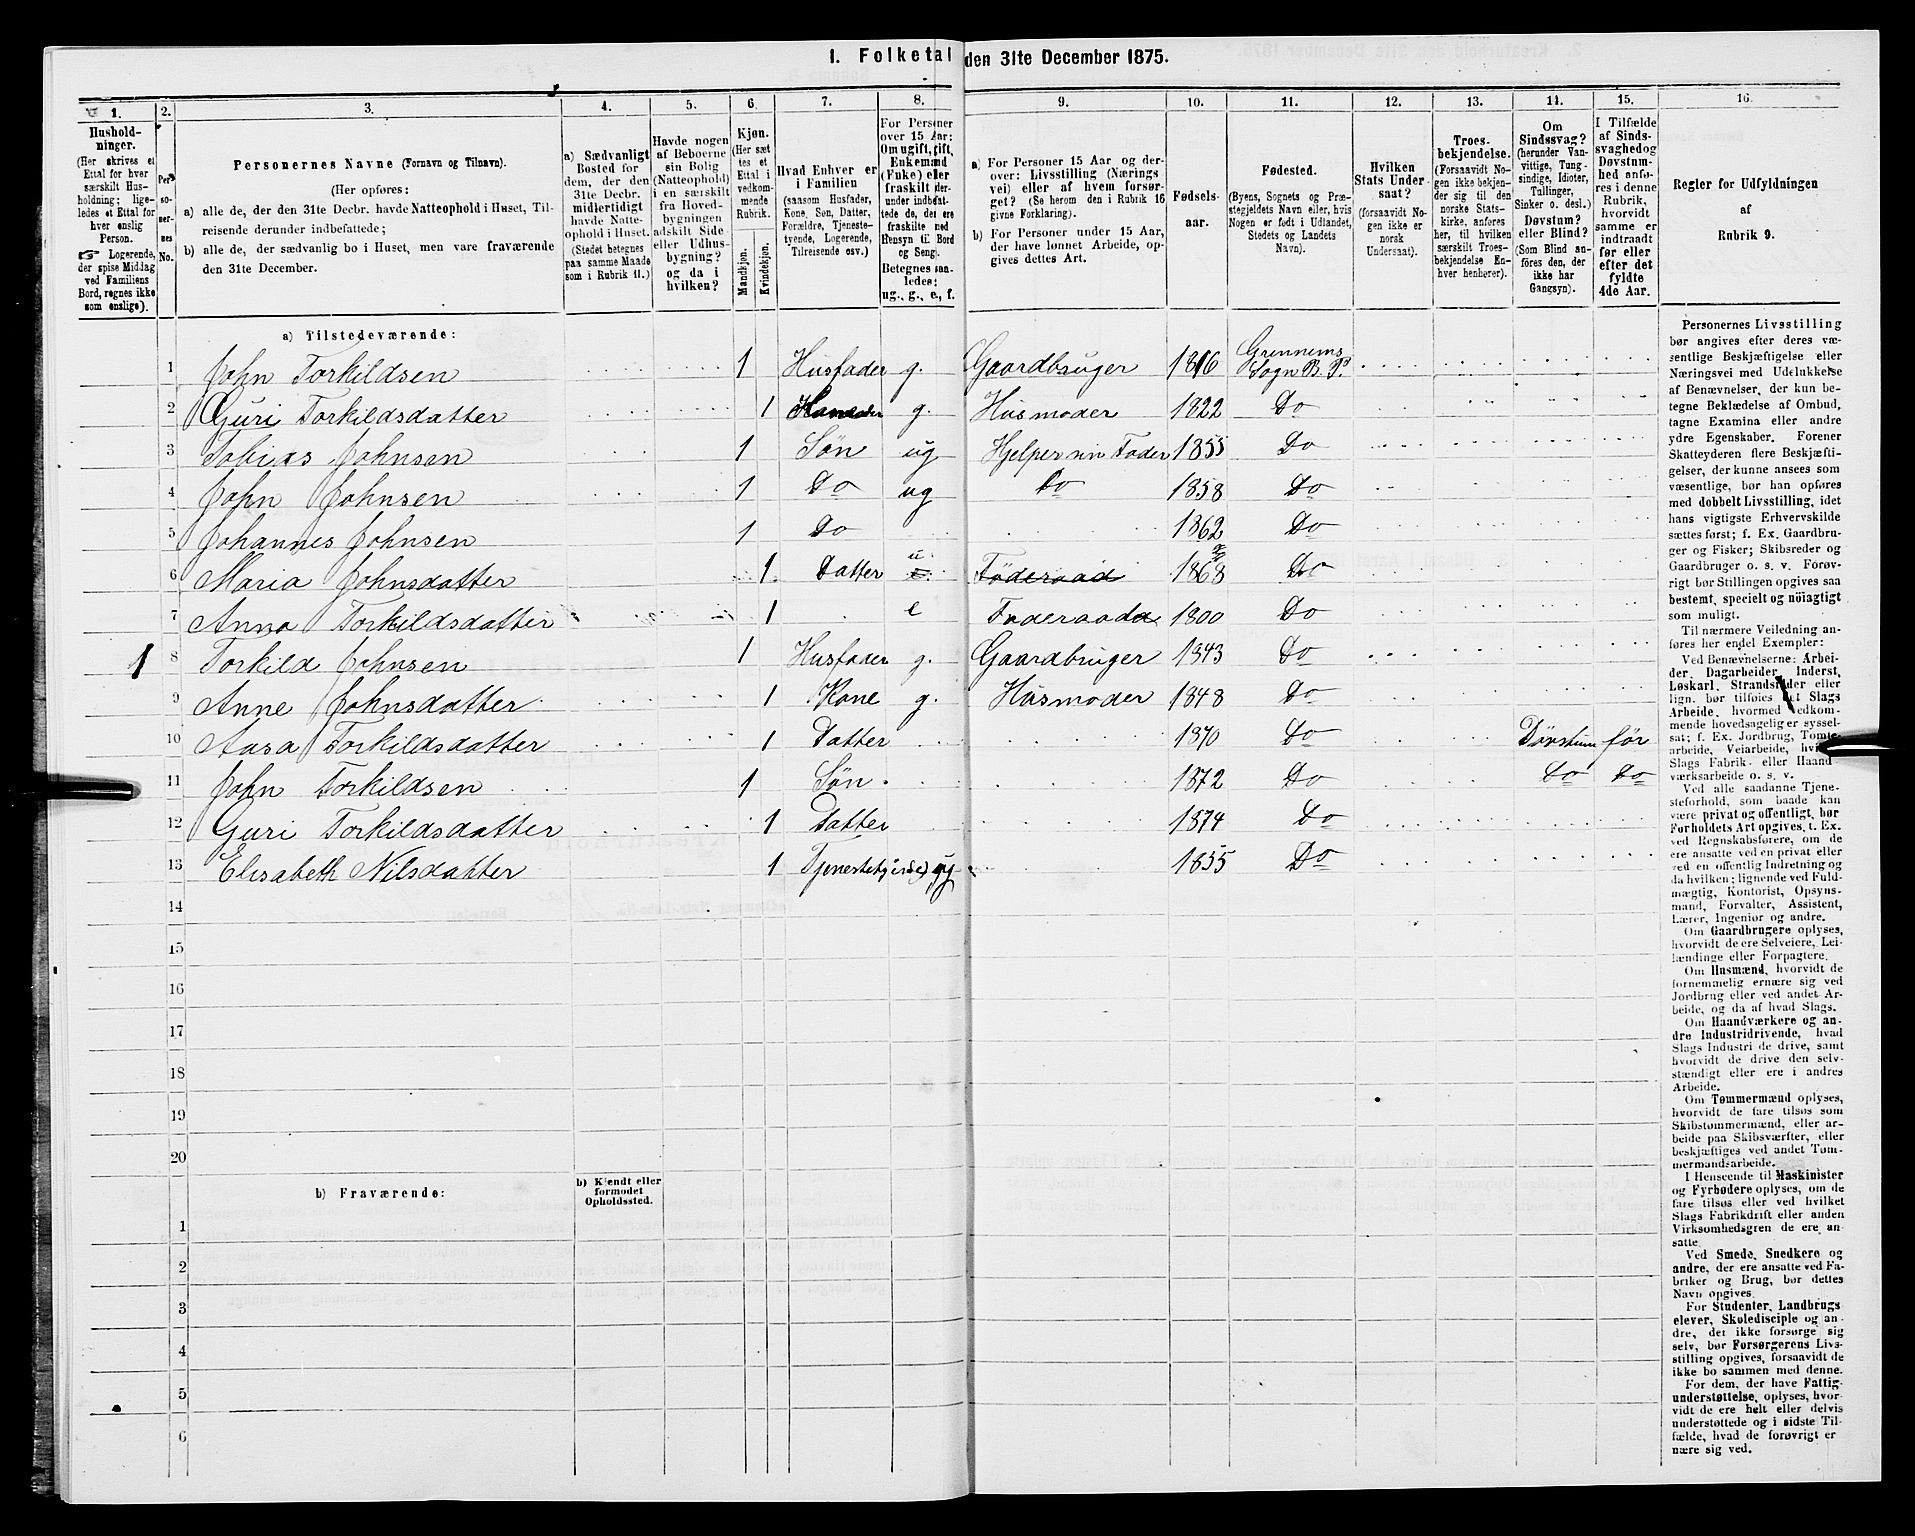 I. Folketal den 31te December 1875.
1. 2. 3. 4. 5. 6. 7. 8. 9. 10. 11. 12. 13. 14. 15. 16.
Hushold-
ninger.
(Her skrives et
Ettal for hver
særskilt Hus-
holdning; lige-
ledes et Ettal for
hver enslig
Person.
☞ Logerende,
der spise Middag
ved Familiens
Bord, regnes ikke
som enslige).
Per-
so-
ner-
nes
No.
Personernes Navne (Fornavn og Tilnavn).
(Her opføres:
a) alle de, der den 31te Decbr. havde Natteophold i Huset, Til-
reisende derunder indbefattede;
b) alle de, der sædvanlig bo i Huset, men vare fraværende
den 31te December.
a) Sædvanligt
Bosted for
dem, der den
31te Decbr.
midlertidigt
havde Natte-
ophold i Huset.
(Stedet betegnes
paa samme Maade
som i Rubrik 11.)
Havde nogen
af Beboerne
sin Bolig
(Natteophold)
i en særskilt
fra Hoved-
bygningen
adskilt Side
eller Udhus-
bygning?
og da i
hvilken?
Kjøn.
(Her sæt
tes et
Ettal i
vedkom-
mende
Rubrik.
Mandkjøn.
Kvindekjøn.
Hvad Enhver er
i Familien
(saasom Husfader,
Kone, Søn, Datter,
Forældre, Tjeneste-
tyende, Logerende,
Tilreisende osv.)
For Personer
over 15 Aar:
Om ugift, gift,
Enkemand
(Enke) eller
fraskilt der-
under indbefat-
tede de, der ere
fraskilte ned
Hensyn til Bord
og Seng.
Betegnes saa-
ledes:
ug., g., e., f.
a) For Personer 15 Aar og der-
over: Livsstilling (Nærings
vei) eller af hvem forsør-
get? (Se herom den i Rubrik 16
givne Forklaring).
b) For Personer under 15 Aar,
der have lønnet Arbeide, op-
gives dettes Art.
Fødsels-
aar.
Fødested.
(Byens, Sognets og Præ-
stegjeldets Navn eller, hvis
Nogen er født i Udlandet,
Stedets og Landets
Navn).
Hvilken
Stats Under
saat?
(forsaavidt No-
gen ikke er
norsk
Undersaat).
Troes-
bekjendelse.
(Forsaavidt No-
gen ikke bekjen-
der sig til den
norske Stats-
kirke, anføres
her, til hvilken
særskilt Troes-
bekjendelse En-
hver henhører).
Om
Sindssvag?
(herunder Van-
vittige, Tung-
sindige, Idioter,
Tullinger,
Sinker o. desl.)
Døvstum?
eller Blind?
(Som Blind an-
føres den, der
ikke har
Gangsyn).
I Tilfælde
af Sinds-
svaghed og
Døvstum-
hed anfø-
res i denne
Rubrik,
hvorvidt
samme er
indtraadt
før eller
efter det
fyldte
4de Aar.
Regler for Udfyldningen
af
Rubrik 9.
a) Tilstedeværende:
1 John Torkildsen 1 Husfader g. Gaardbruger 1816 Grennems Sogn B. P.
2 Guri Torkildsdatter 1 g. Husmoder 1822 Do
3 Tobias Johnsen 1 Søn ug Hjelper sin Fader 1855 Do
4 John Johnsen 1 Do ug Do 1858 Do
5 Johannes Johnsen 1 Do 1862 Do
6 Maria Johnsdatter 1 Datter u. Føderaad 1868 Do
7 Anna Torkildsdatter 1 e Føderaad 1800 Do
1 8 Torkild Johnsen 1 Husfader g. Gaardbruger 1843 Do
9 Anne Johnsdatter 1 Kone g. Husmoder 1848 Do
10 Aasa Torkildsdatter 1 Datter 1870 Do Døvstum før
11 John Torkildsen 1 Søn 1872 Do Do Do
12 Guri Torkildsdatter 1 Datter 1874 Do
13 Elisabeth Nilsdatter 1 Tjenestepige ug 1855 Do
14
15
16
17
18
19
20
b) Fraværende:
b) Kjendt eller
formodet
Opholdssted.
1
2
3
4
5
6
Personernes Livsstilling
bør angives efter deres væ-
sentlige Beskjæftigelse eller
Næringsvei med Udelukkelse
af Benævnelser, der kun be-
tegne Beklædelse af Ombud,
tagne Examina eller andre
ydre Egenskaber. Forener
Skatteyderen flere Beskjæfti-
gelser, der kunne ansees som
væsentlige, bør han opføres
med dobbelt Livsstilling, idet
hans vigtigste Erhvervskilde
sættes først; f. Ex. Gaardbru-
ger og Fisker; Skibsreder og
Gaardbruger o. s. v. Forøv-
rigt bør Stillingen opgives saa
bestemt, specielt og nøiagtigt
som muligt.
Til nærmere Veiledning an-
føres her endel Exempler:
Ved Benævnelserne: Arbei-
der, Dagarbeider, Inderst,
Løskarl, Strandsidder eller
lign. bør tilføies det Slags
Arbeide, hvormed vedkom-
mende hovedsagelig er syssel-
sat; f. Ex. Jordbrug, Tomte-
arbeide, Veiarbeide, hvilket
Slags Fabrik- eller Haand
værksarbeide o. s. v.
Ved alle saadanne Tjene-
steforhold, som baade kan
være privat og offentligt, bør
Forholdets Art opgives, t. Ex.
ved Regnskabsførere, om de
ere ansatte ved en privat eller
ved en offentlig Indretning og
da hvilken; lignende ved Fuld-
mægtig, Kontorist, Opsyns-
mand, Forvalter, Assistent,
Lærer, Ingeniør og andre.
Om Gaardbrugere oplyses,
hvorvidt de ere Selveiere, Lei-
lændinge eller Forpagtere.
Om Husmænd, hvorvidt de
fornemmelig ernære sig ved
Jordbrug eller ved andet Ar-
beide, og da af hvad Slags.
Om Haandværkere og an-
dre Industridrivende, hvad
Slags Industri de drive, samt
hvorvidt de drive den selv-
stændigt eller ere i andres
Arbeide.
Om Tømmermænd oplyses,
hvorvidt de fare tilsøs som
Skibstømmermænd, eller ar-
beide paa Skibsværfter, eller
beskjæftiges ved andet Tøm-
mermandsarbeide.
I Henseende til Maskinister
og Fyrbødere oplyses, om de
fare tilsøs eller ved hvilket
Slags Fabrikdrift eller anden
Virksomhedsgren de ere an-
satte.
Ved Smede, Snedkere og
andre, der ere ansatte ved Fa-
briker og Brug, bør dettes
Navn opgives.
For Studenter, Landbrugs
elever, Skoledisciple og an-
dre, der ikke forsørge sig
selv, bør Forsørgerens Livs-
stilling opgives, forsaavidt de
ikke bo sammen med denne.
For dem, der have Fattig-
understøttelse, oplyses, hvor-
vidt de ere helt eller delvis
understøttede og i sidste Til-
fælde, hvad de forøvrigt er
nære sig ved.